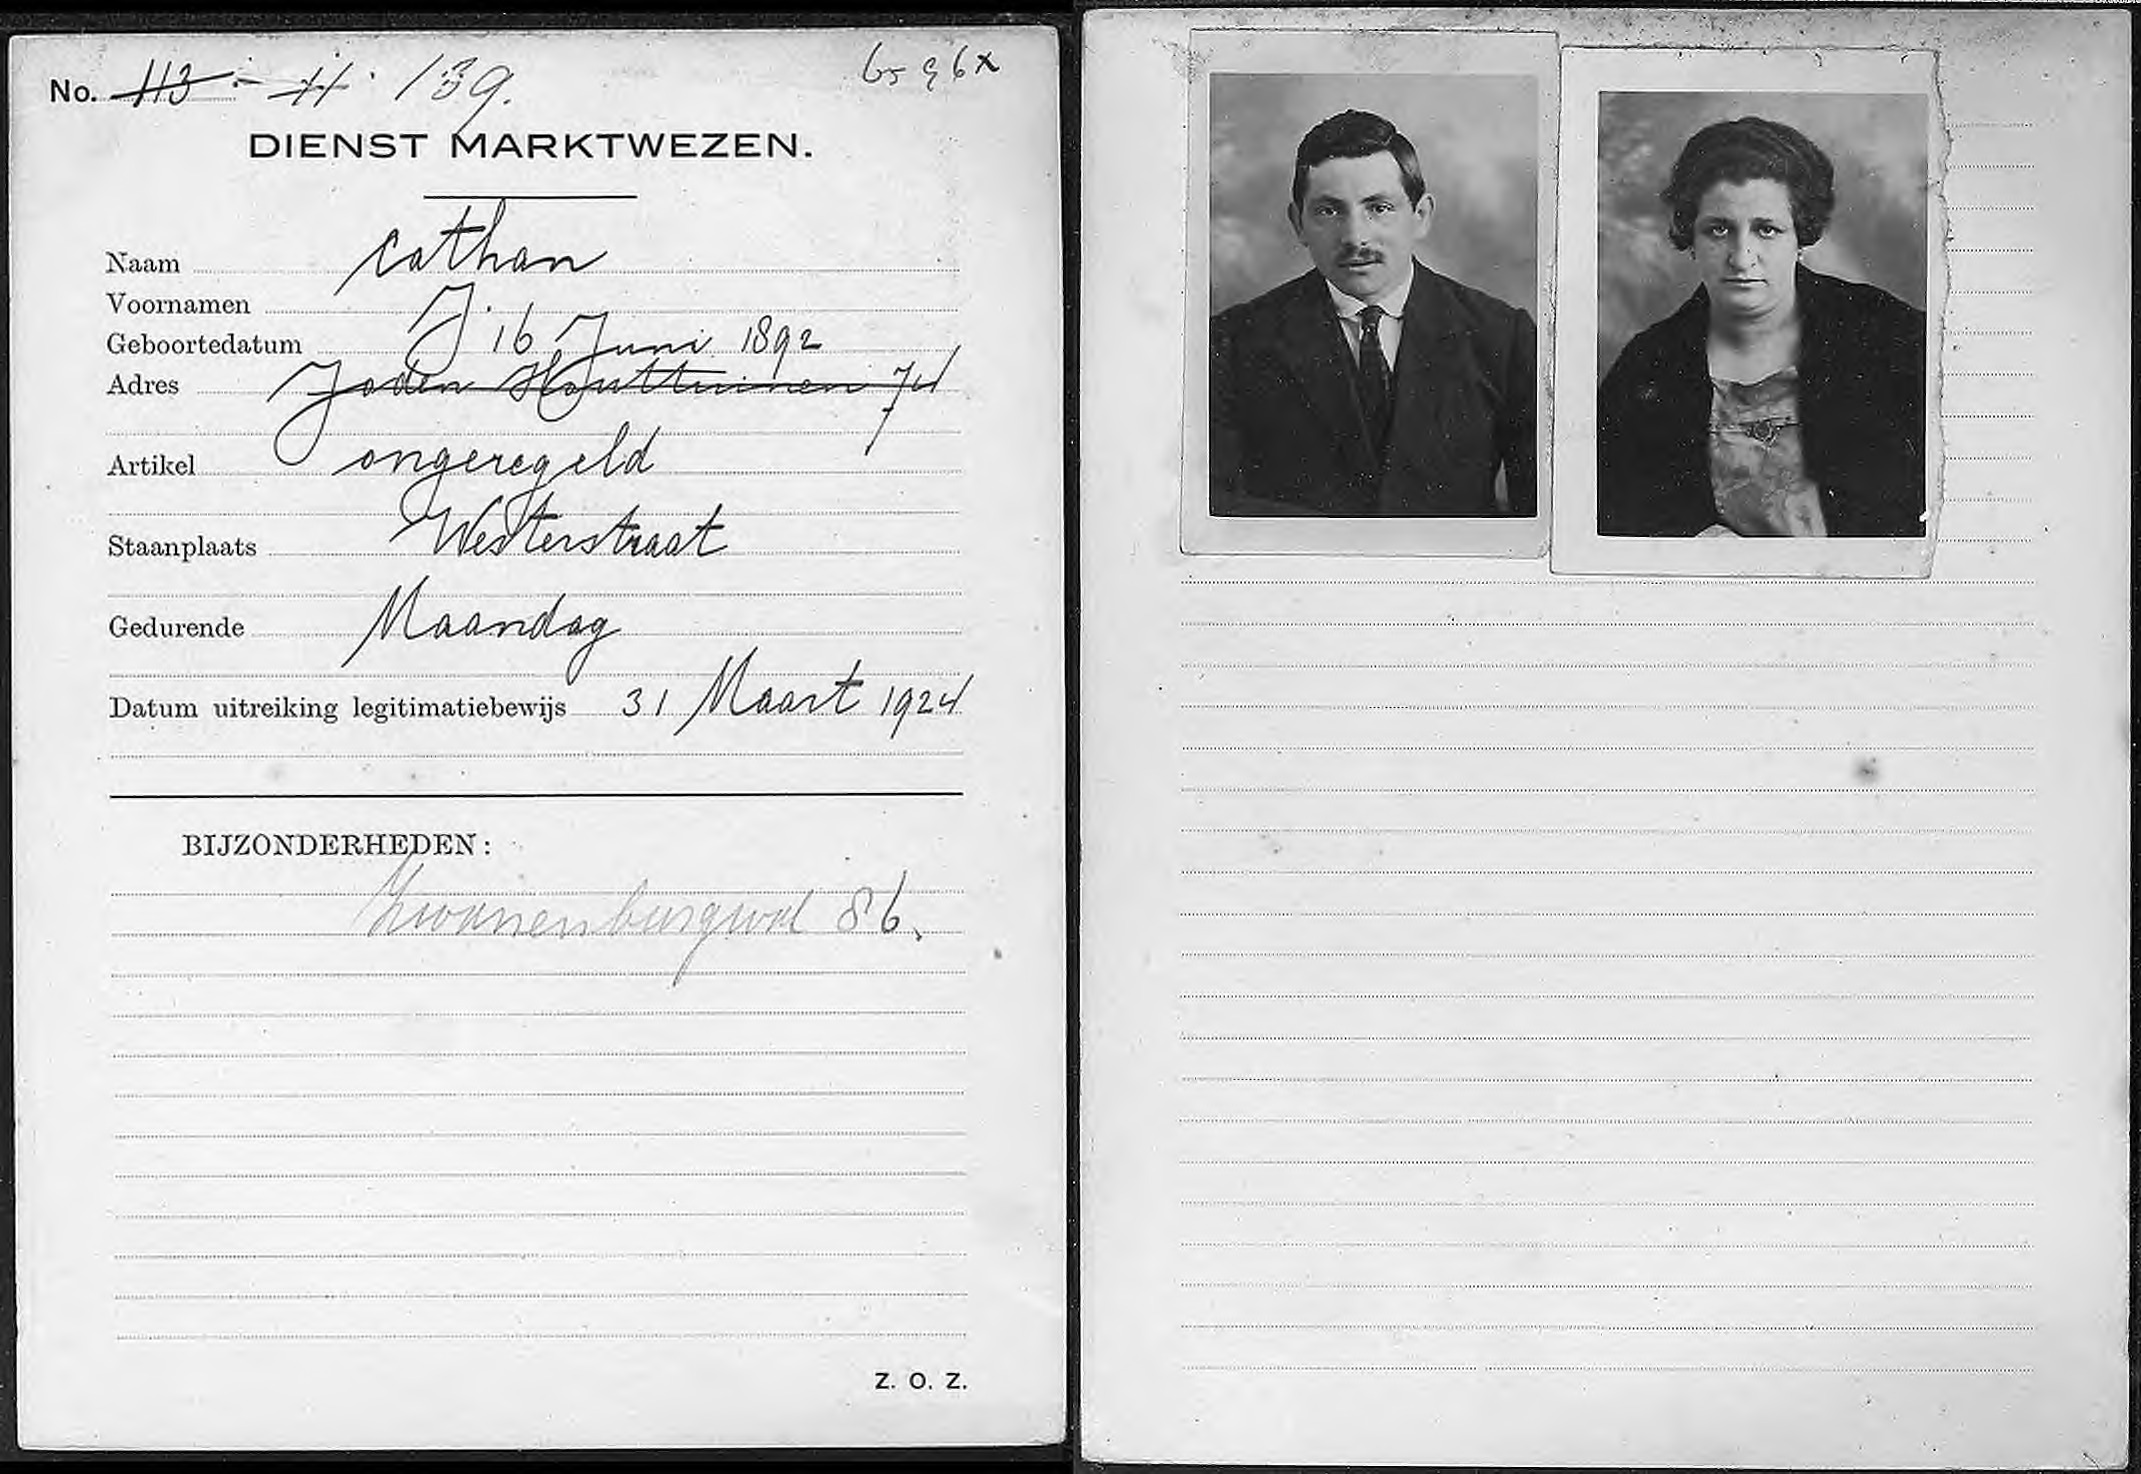 No. 113 - 11 139.
DIENST MARKTWEZEN.
Naam Cathan
Voornamen J.
Geboortedatum 16 Juni 1892
Adres Joden Houttuinen 74
Artikel ongeregeld
Staanplaats Westerstraat
Gedurende Maandag
Datum uitreiking legitimatiebewijs 31 Maart 1924
BIJZONDERHEDEN:
Zwanenburgwal 86.
Z. O. Z.